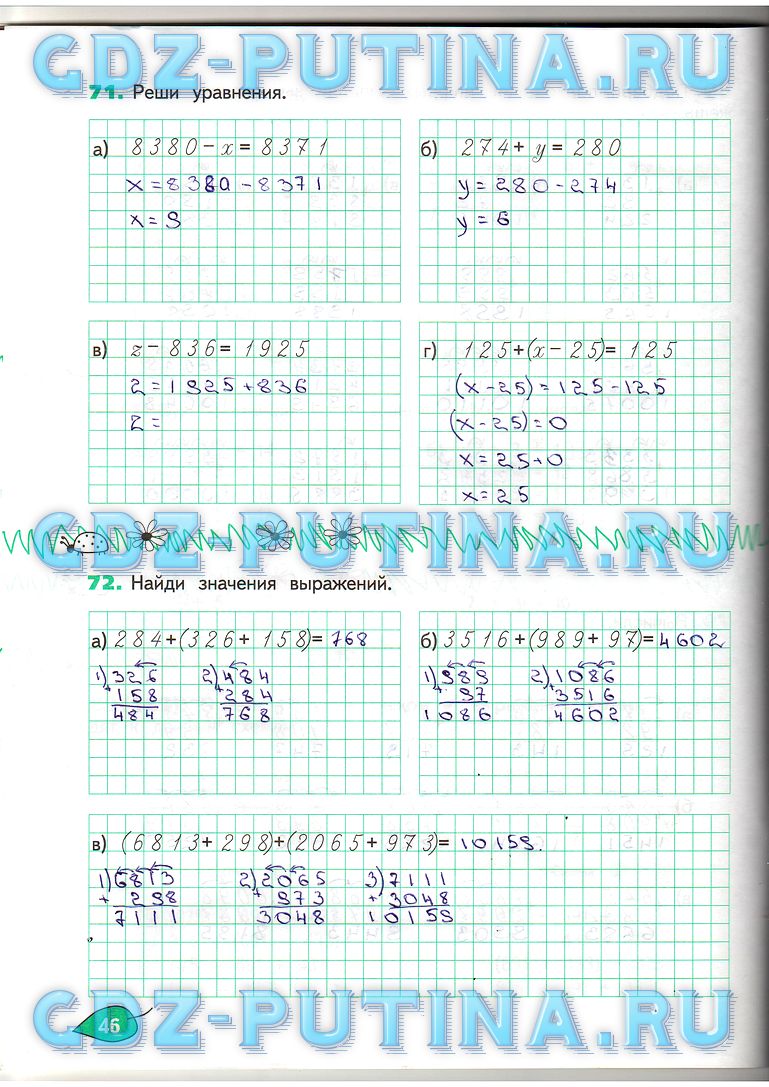 GDZ-PUTINA.RU
71. Реши уравнения.
а) 8380 - x = 8371
x = 8380 - 8371
x = 9
б) 274 + y = 280
y = 280 - 274
y = 6
в) z - 836 = 1925
z = 1925 + 836
z =
г) 125 + (x - 25) = 125
(x - 25) = 125 - 125
(x - 25) = 0
x = 25 + 0
x = 25
GDZ-PUTINA.RU
72. Найди значения выражений.
а) 284 + (326 + 158) = 768
1) 326 2) 484
+ 158 + 284
484 768
б) 3516 + (989 + 97) = 4602
1) 989 2) 1086
+ 97 + 3516
1086 4602
в) (6813 + 298) + (2065 + 973) = 10159.
1) 6813 2) 2065 3) 7111
+ 298 + 973 + 3048
7111 3048 10159
46
GDZ-PUTINA.RU